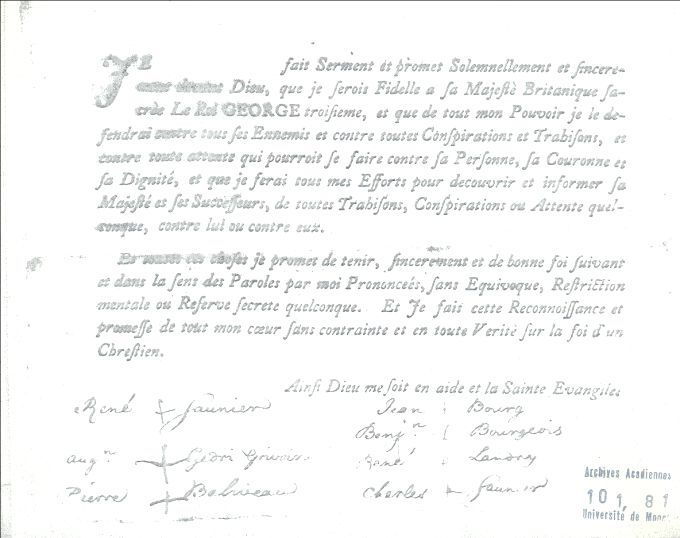 JE fait Serment et promet Solemnellement et sincere-
ment devant Dieu, que je serois Fidelle a sa Majesté Britanique sa-
crée Le Roi GEORGE troisieme, et que de tout mon Pouvoir je le de-
fendrai contre tous ses Ennemis et contre toutes Conspirations et Trahisons, et
contre toute attente qui pourroit se faire contre sa Personne, sa Couronne et
sa Dignité, et que je ferai tous mes Efforts pour decouvrir et informer sa
Majesté et ses Successeurs, de toutes Trahisons, Conspirations ou Attente quel-
conque, contre lui ou contre eux.
Et toutes ces choses je promet de tenir, sincerement et de bonne foi suivant
et dans la sens des Paroles par moi Prononceés, sans Equivoque, Restriction
mentale ou Reserve secrete quelconque. Et Je fais cette Reconnoissance et
promesse de tout mon cœur sans contrainte et en toute Verité sur la foi d'un
Chrestien.
Ainsi Dieu me soit en aide et la Sainte Evangiles
René + Saunier Jean Bourg
Benjn Bourgeois
Augn + René Landry
Pierre + Babineau Charles + Saunier
Archives Acadiennes
10 1, 81
Université de